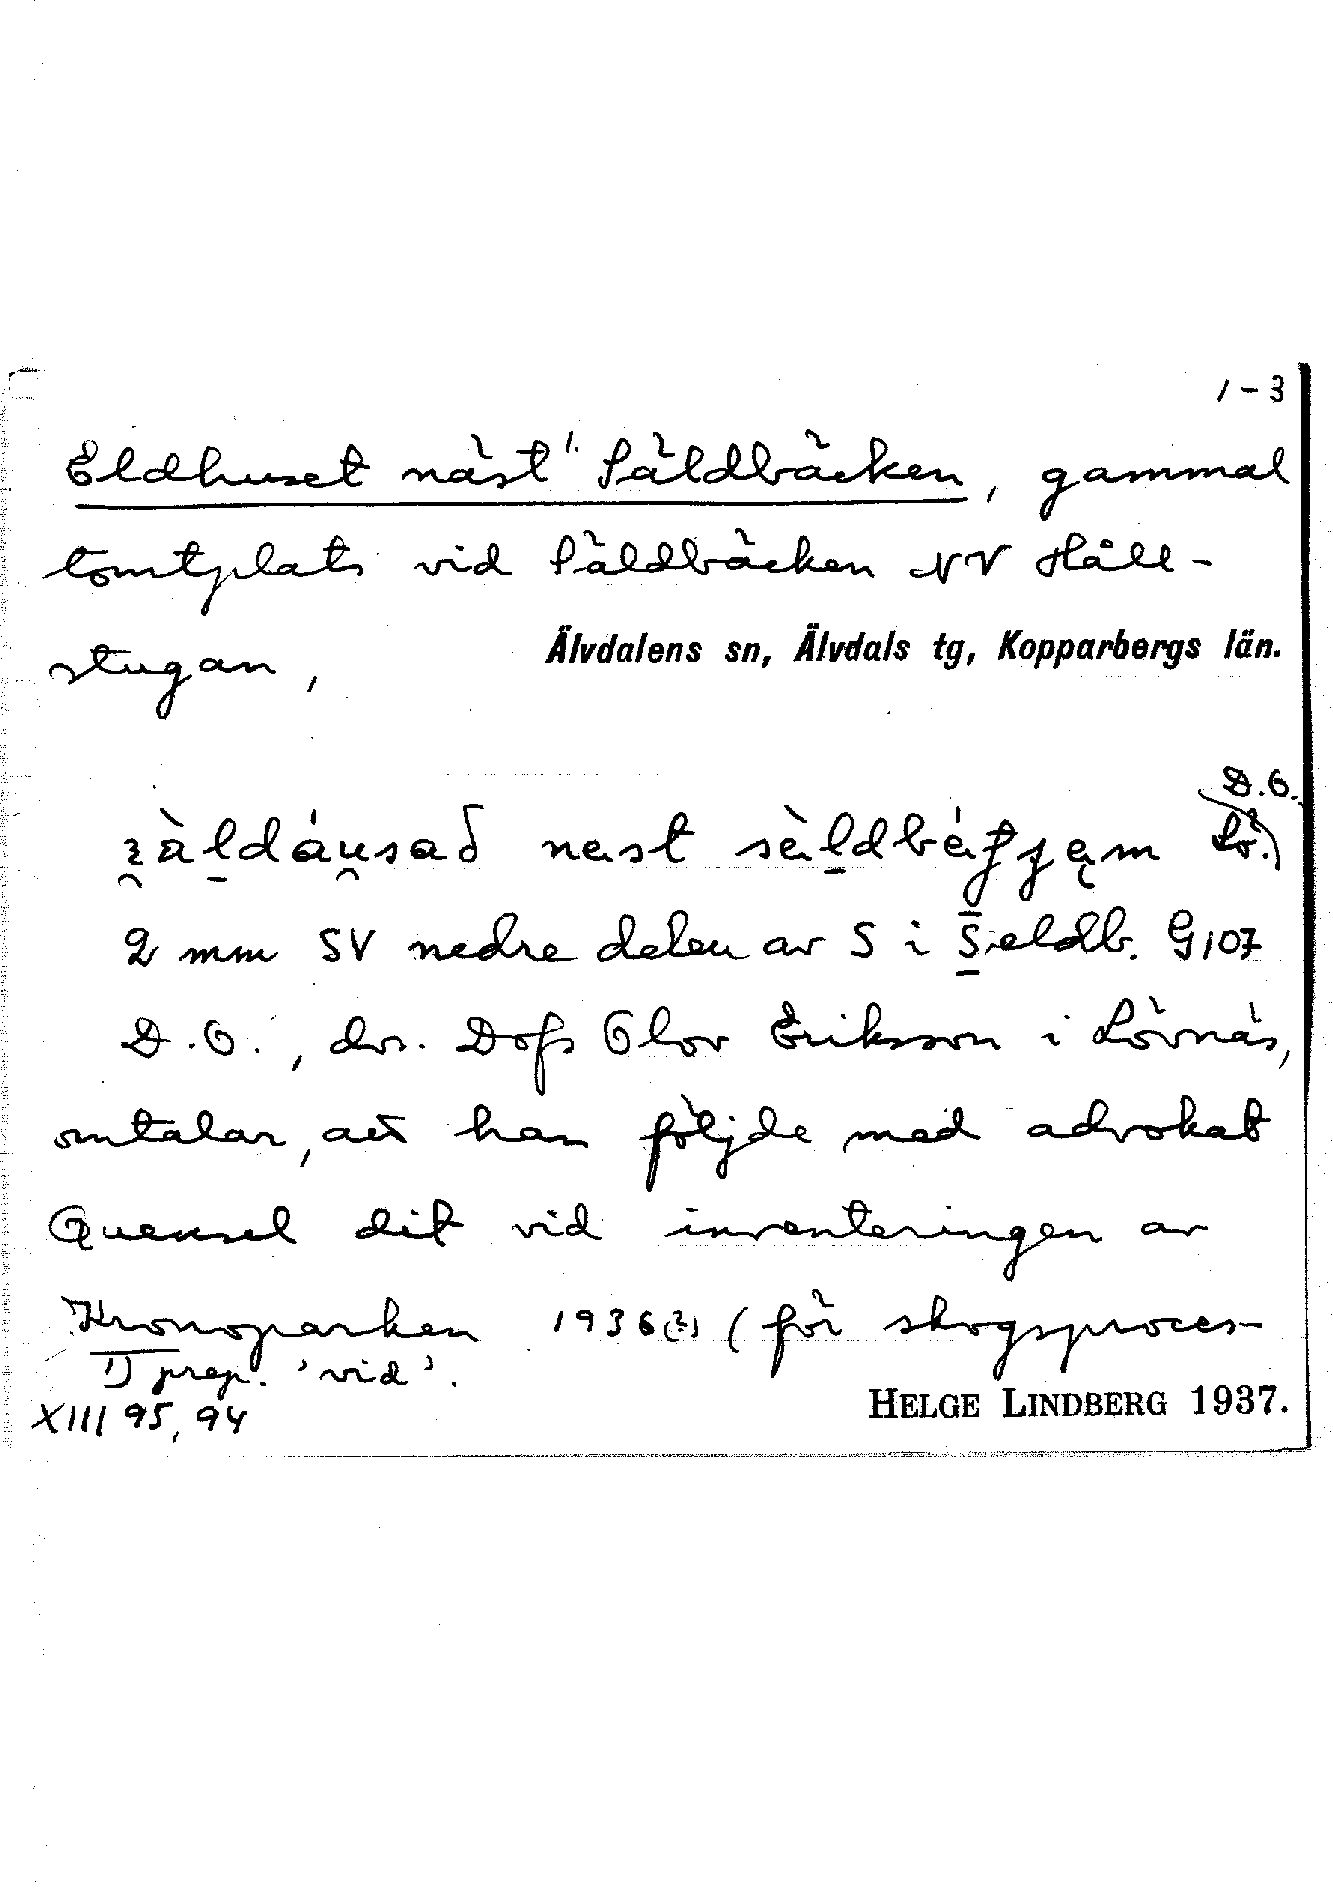 1-3
Eldhuset näst¹⁾ Säldbäcken, gammal
tomtplats vid Säldbäcken NV Håll-
stugan,
Älvdalens sn, Älvdals tg, Kopparbergs län.
D.O.
näst Lö.)
2 mm SV nedre delen av S i Seldb. G107
D.O., dvs. Dofs Olov Eriksson i Lövnäs,
omtalar, att han följde med advokat
Quensel dit vid inventeringen av
Kronoparken 1936(?) (för skogsproces-
1) prep. 'vid'.
XIII 95, 94
HELGE LINDBERG 1937.